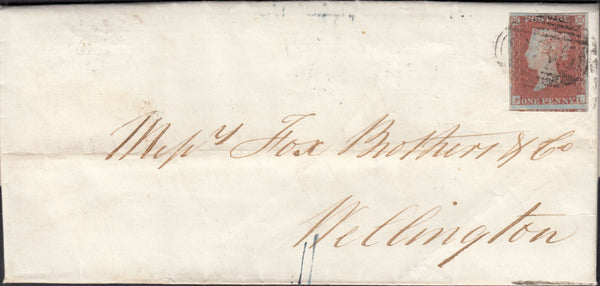 POSTAGE
ONE PENNY
Messrs Fox Brothers & Co
Wellington